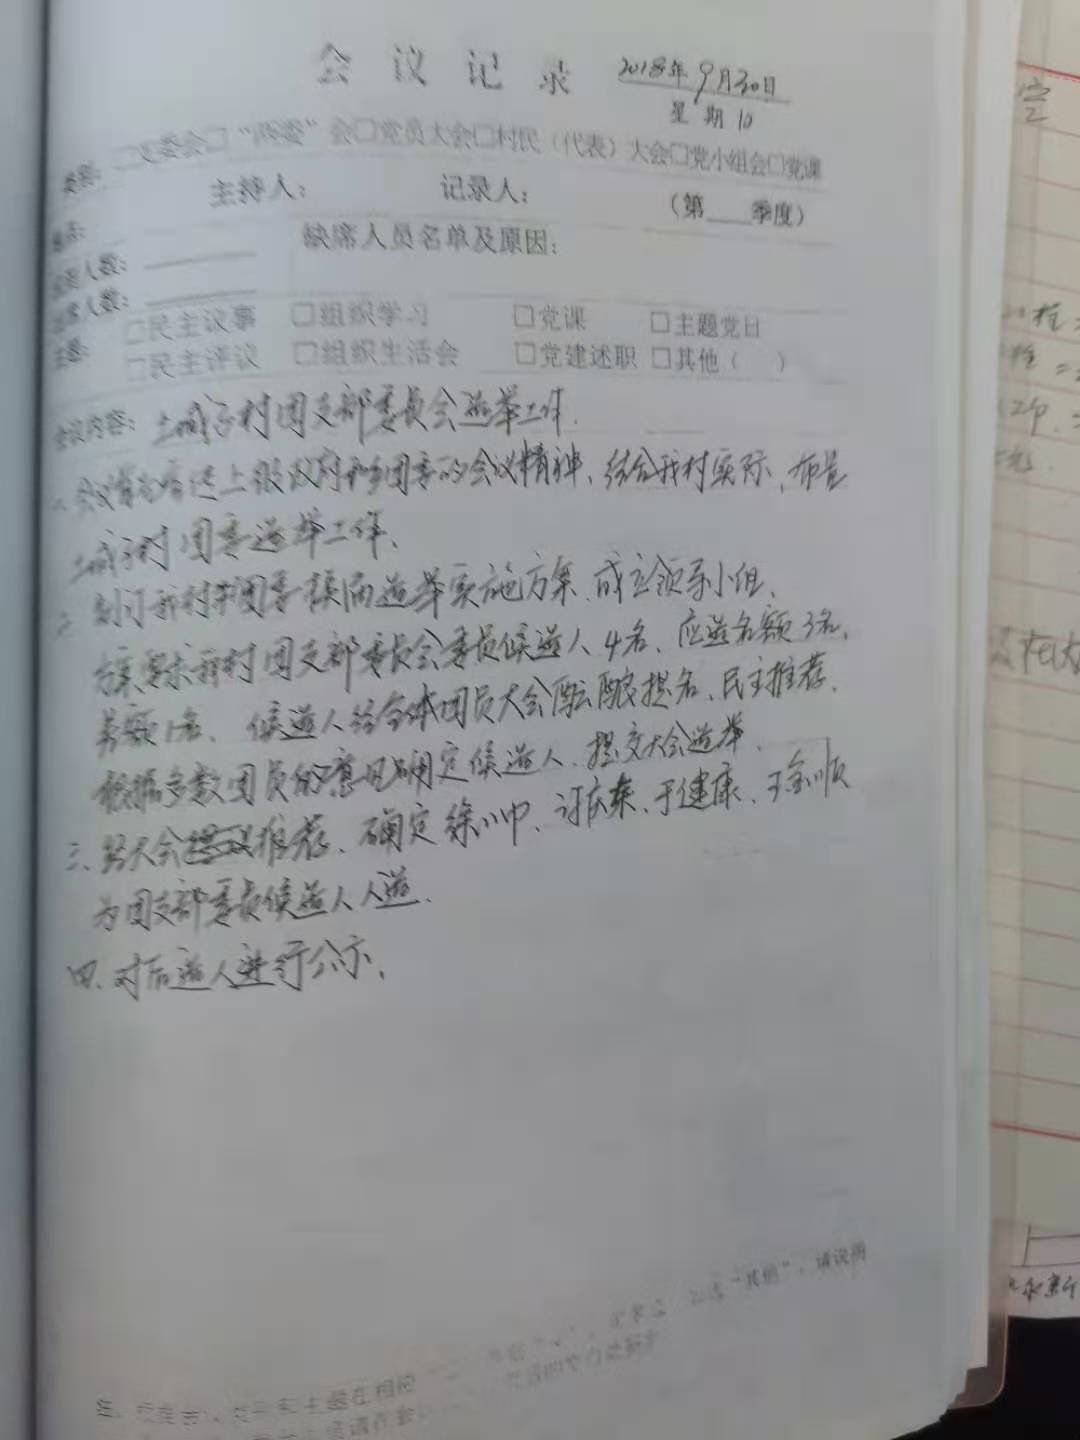 会议记录 2018年9月30日
星期10
类别：□支委会□“两委”会□党员大会□村民（代表）大会□党小组会□党课
主持人： 记录人： （第___季度）
缺席人员名单及原因：
人数：
席人数：
主题： □民主议事 □组织学习 □党课 □主题党日
□民主评议 □组织生活会 □党建述职 □其他（ ）
会议内容：土城子村团支部委员会选举工作.
一、会议首先传达上级政府和乡团委的会议精神、结合我村实际、布置
土城子村团委选举工作、
二、制订我村团委换届选举实施方案、成立领导小组、
方案要求我村团支部委员会委员候选人4名、应选名额3名、
差额1名、候选人经全体团员大会酝酿提名、民主推荐、
根据多数团员的意见确定候选人、提交大会选举、
三、经大会提议推荐、确定徐小巾、许庆东、于健康、于金顺
为团支部委员候选人人选.
四、对后选人进行公示、
“其他”，请说明
主题在相应